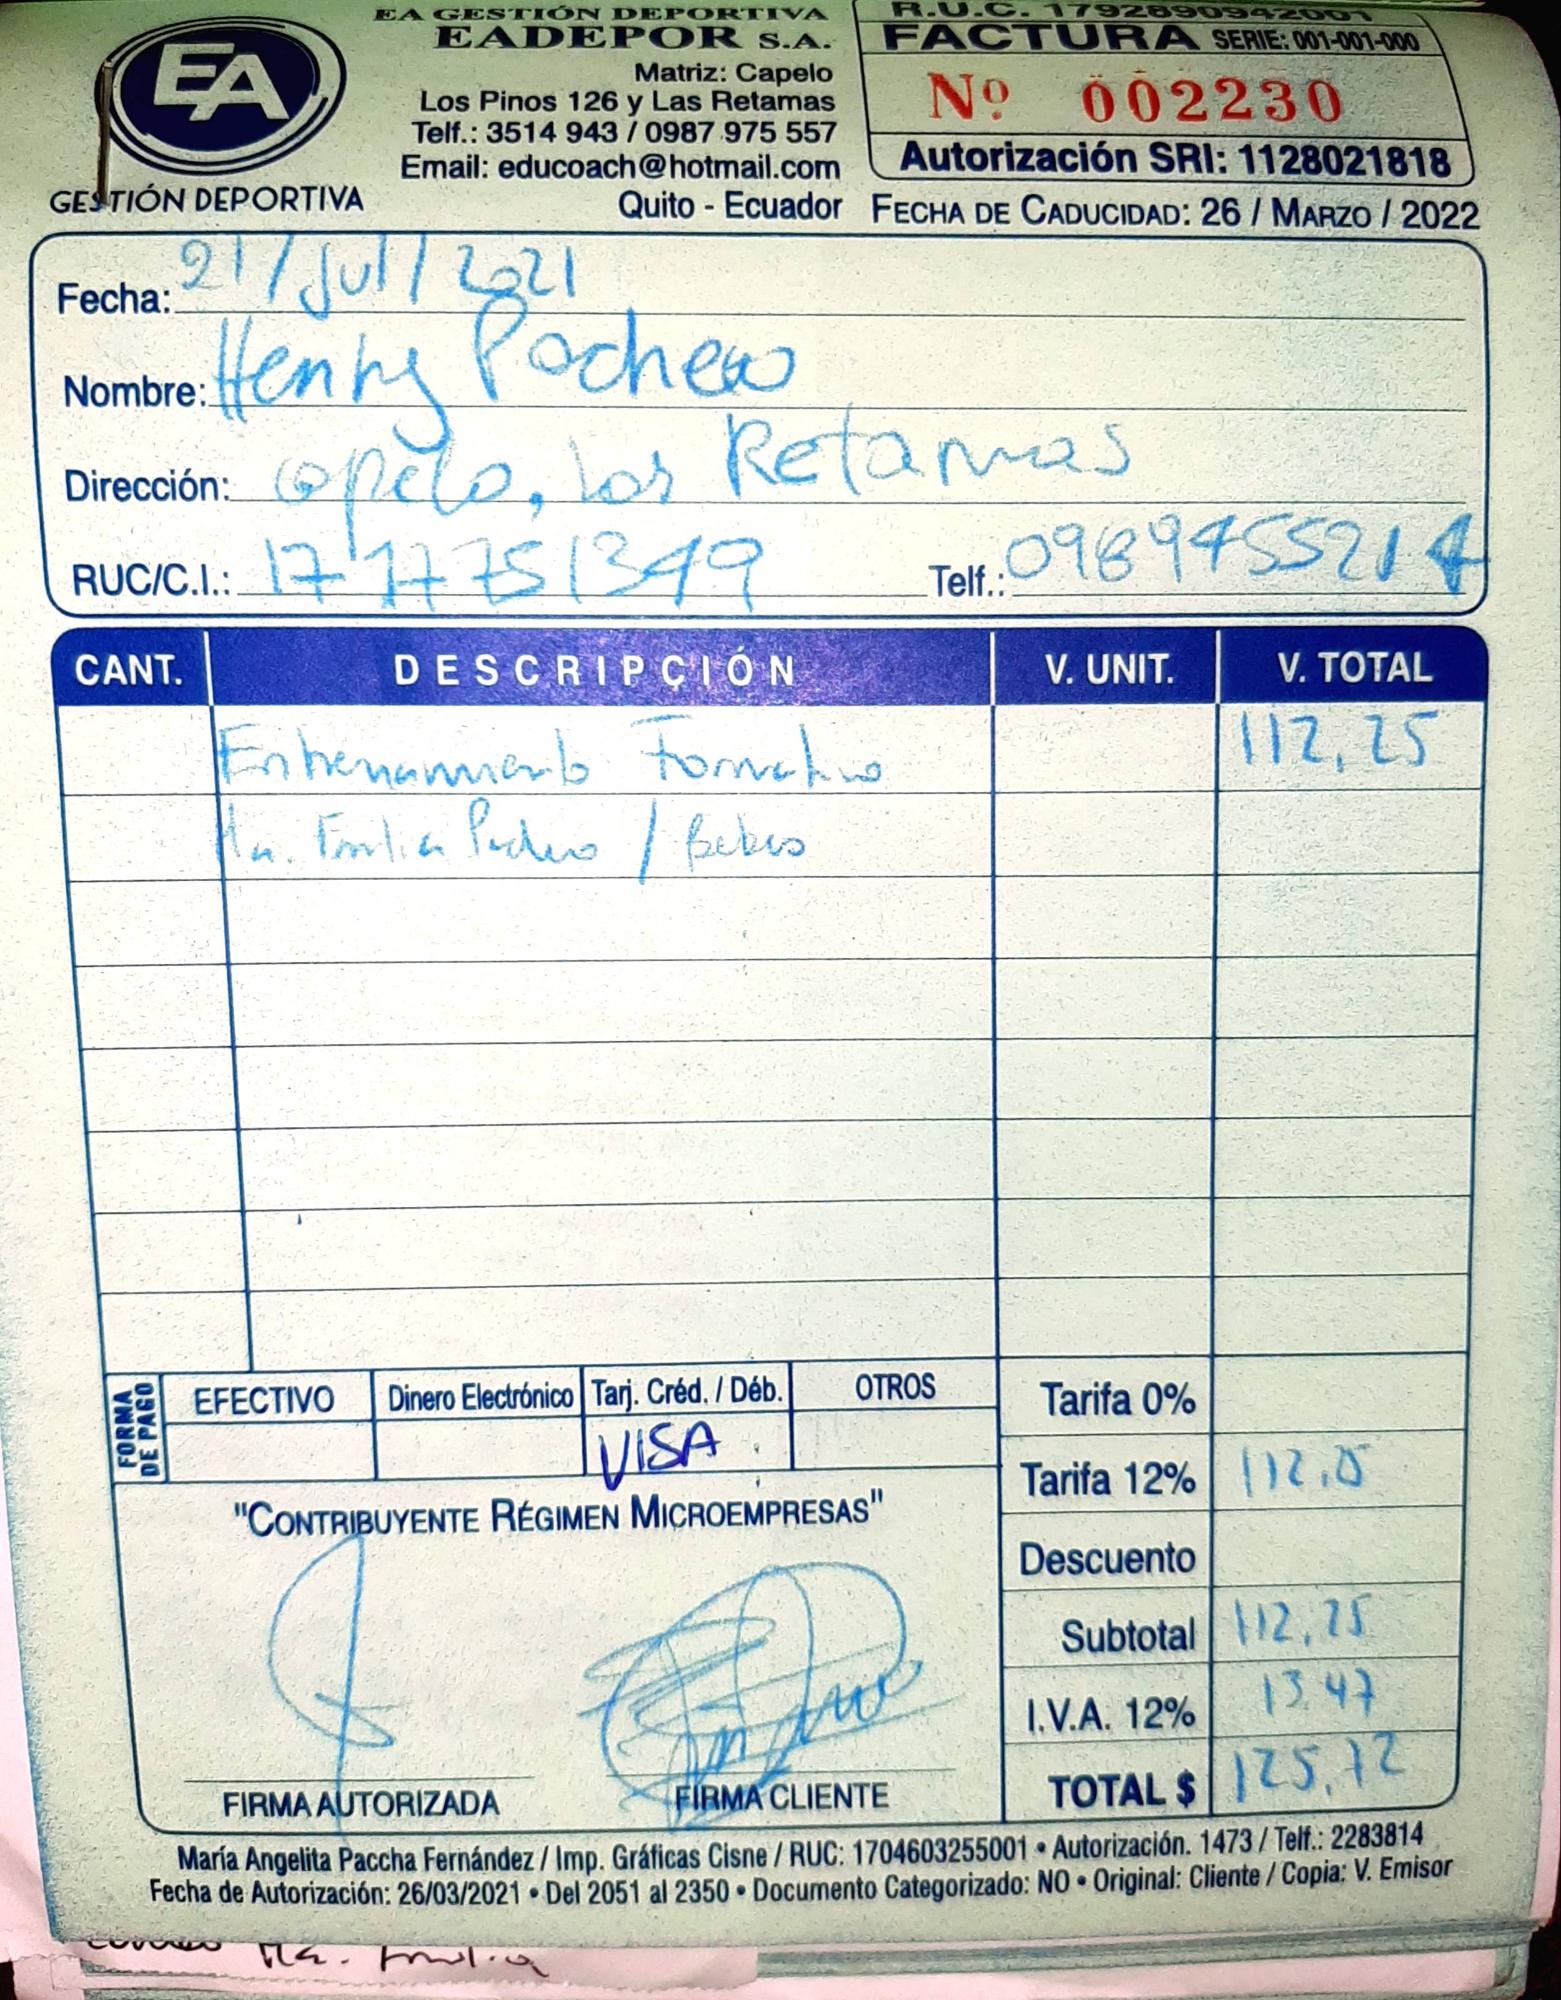 EA
GESTIÓN DEPORTIVA
EA GESTIÓN DEPORTIVA
EADEPOR S.A.
Matriz: Capelo
Los Pinos 126 y Las Retamas
Telf.: 3514 943 / 0987 975 557
Email: educoach@hotmail.com
Quito - Ecuador
R.U.C. 1792890942001
FACTURA SERIE: 001-001-000
Nº 002230
Autorización SRI: 1128021818
FECHA DE CADUCIDAD: 26 / MARZO / 2022
Fecha: 21/Jul/2021
Nombre: Henry Pacheco
Dirección: Capelo, Las Retamas
RUC/C.I.: 1717751349 Telf.: 0989455214
CANT. DESCRIPCIÓN V. UNIT. V. TOTAL
Entrenamiento Formativo 112,25
Ma. Emilia Pacheco / Bebes
FORMA DE PAGO
EFECTIVO Dinero Electrónico Tarj. Créd. / Déb. OTROS
VISA
Tarifa 0%
Tarifa 12% 112,25
Descuento
Subtotal 112,25
I.V.A. 12% 13.47
TOTAL $ 125,72
"CONTRIBUYENTE RÉGIMEN MICROEMPRESAS"
FIRMA AUTORIZADA FIRMA CLIENTE
María Angelita Paccha Fernández / Imp. Gráficas Cisne / RUC: 1704603255001 • Autorización. 1473 / Telf.: 2283814
Fecha de Autorización: 26/03/2021 • Del 2051 al 2350 • Documento Categorizado: NO • Original: Cliente / Copia: V. Emisor
Ma. Emilia